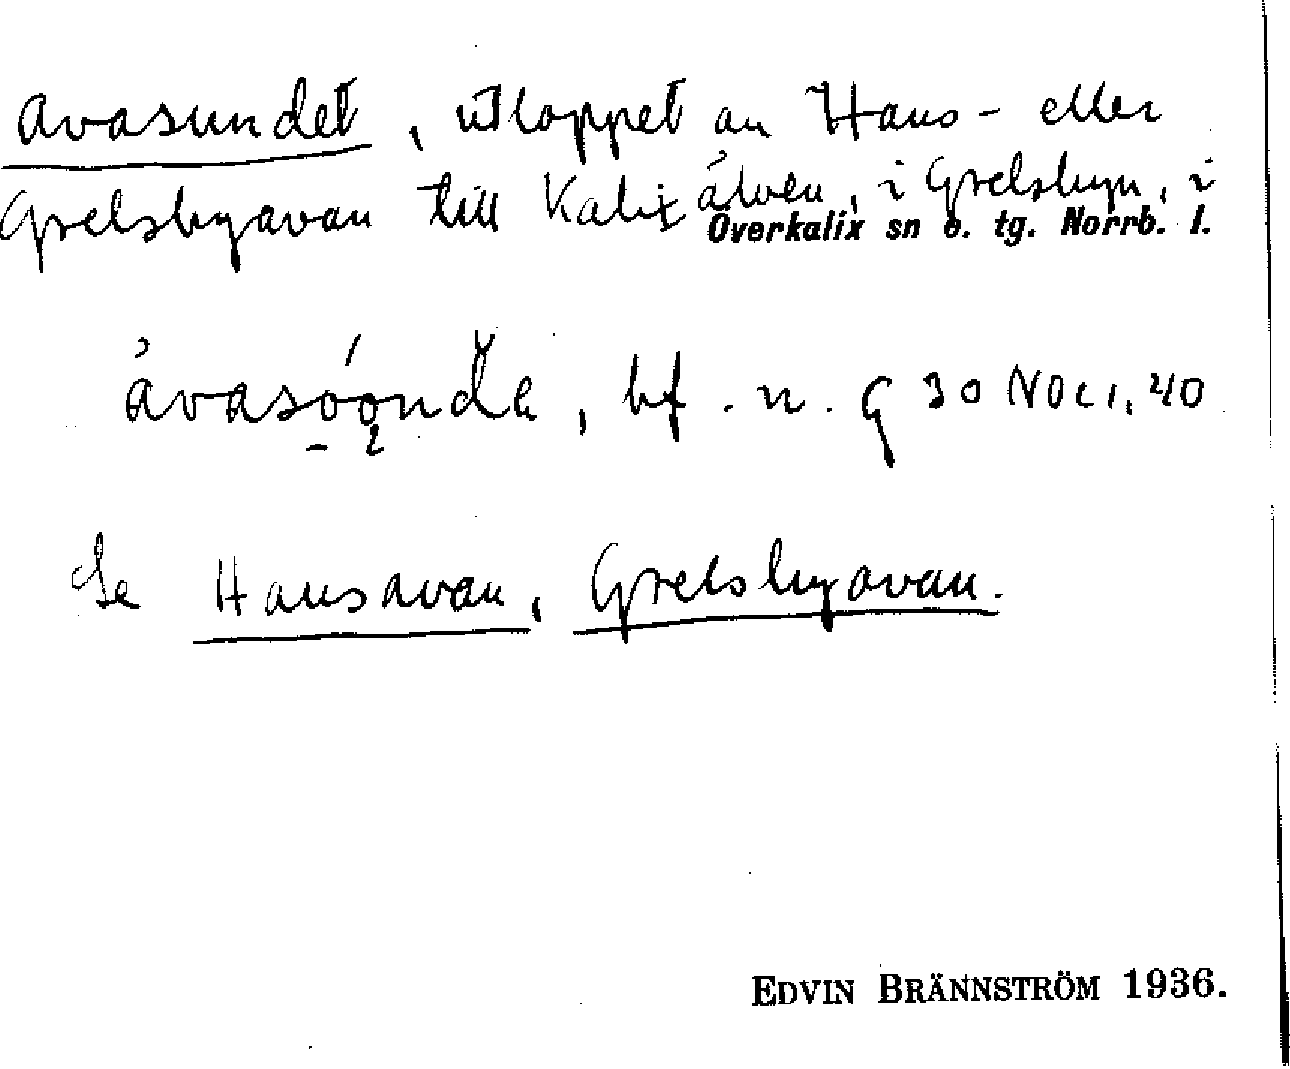 Avasundet, utloppet av Haus- eller
Grelsbyavan till Kalix älven, i Grelsbyn, i
Överkalix sn o. tg. Norrb. l.
bf. n. G 30 Nov. 40
Se Hausavan, Grelsbyavan.
EDVIN BRÄNNSTRÖM 1936.